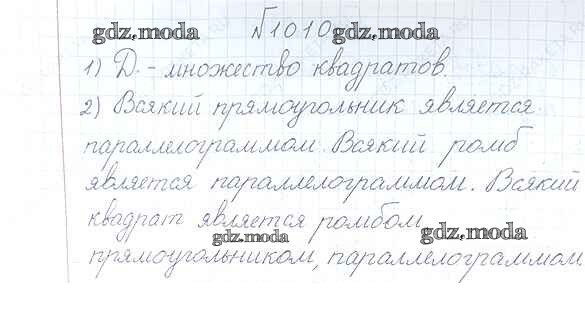 gdz.moda №1010 gdz.moda
1) D. - множество квадратов.
2) Всякий прямоугольник является
параллелограммом. Всякий ромб
является параллелограммом. Всякий
квадрат является ромбом,
gdz.moda gdz.moda
прямоугольником, параллелограммом.